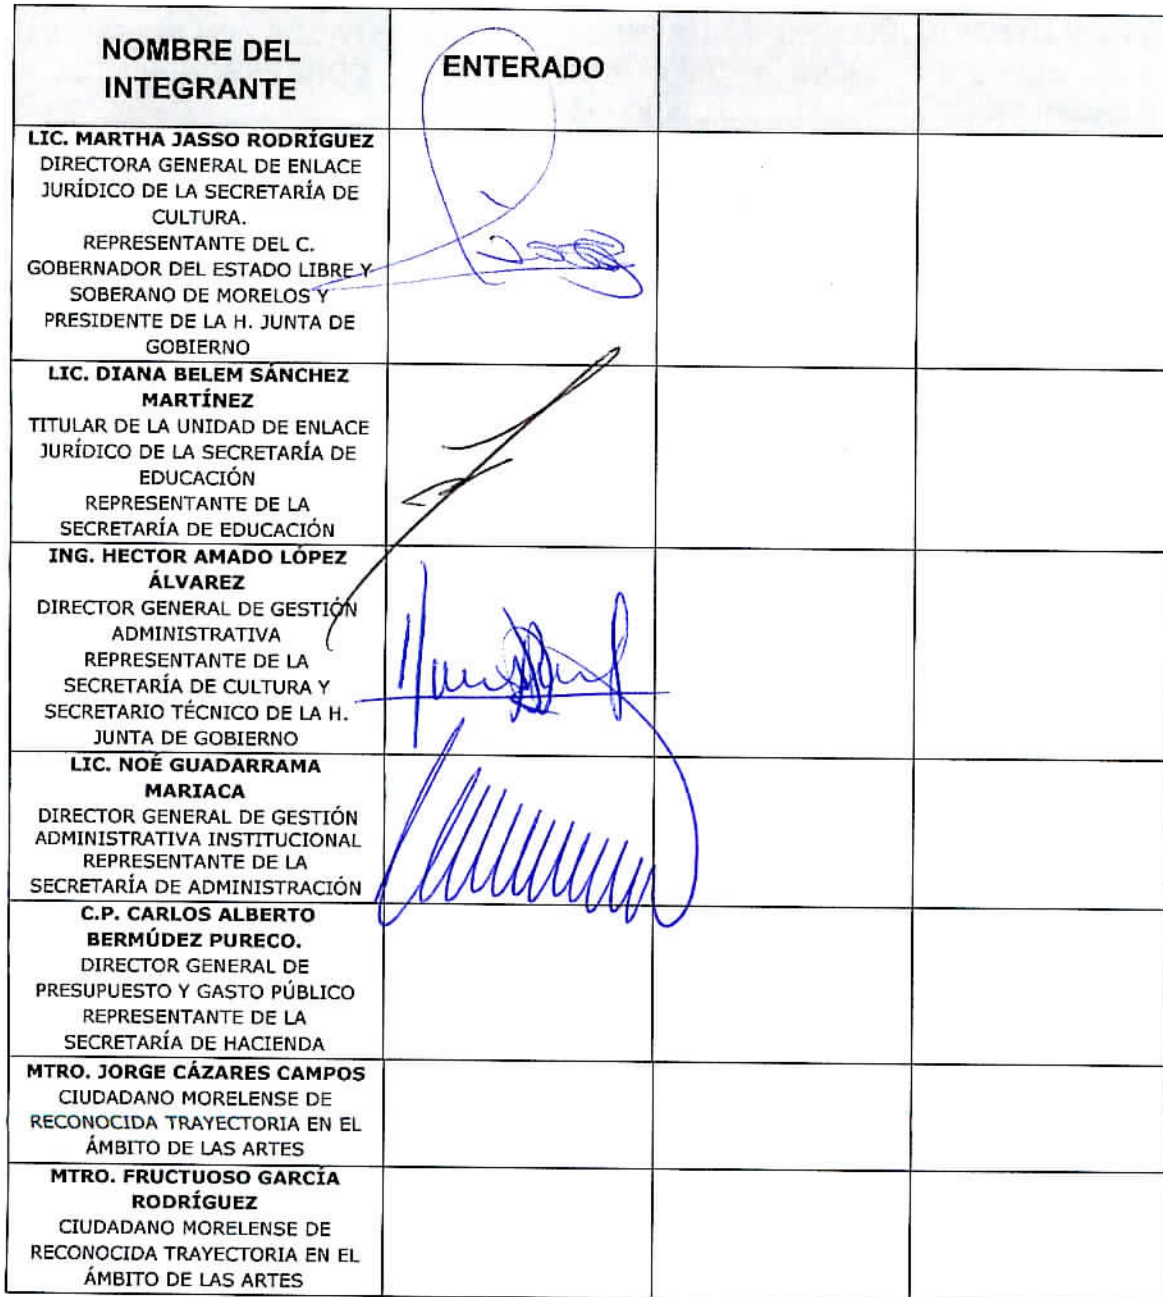 NOMBRE DEL
INTEGRANTE
ENTERADO
LIC. MARTHA JASSO RODRÍGUEZ
DIRECTORA GENERAL DE ENLACE
JURÍDICO DE LA SECRETARÍA DE
CULTURA.
REPRESENTANTE DEL C.
GOBERNADOR DEL ESTADO LIBRE Y
SOBERANO DE MORELOS Y
PRESIDENTE DE LA H. JUNTA DE
GOBIERNO
LIC. DIANA BELEM SÁNCHEZ
MARTÍNEZ
TITULAR DE LA UNIDAD DE ENLACE
JURÍDICO DE LA SECRETARÍA DE
EDUCACIÓN
REPRESENTANTE DE LA
SECRETARÍA DE EDUCACIÓN
ING. HECTOR AMADO LÓPEZ
ÁLVAREZ
DIRECTOR GENERAL DE GESTIÓN
ADMINISTRATIVA
REPRESENTANTE DE LA
SECRETARÍA DE CULTURA Y
SECRETARIO TÉCNICO DE LA H.
JUNTA DE GOBIERNO
LIC. NOÉ GUADARRAMA
MARIACA
DIRECTOR GENERAL DE GESTIÓN
ADMINISTRATIVA INSTITUCIONAL
REPRESENTANTE DE LA
SECRETARÍA DE ADMINISTRACIÓN
C.P. CARLOS ALBERTO
BERMÚDEZ PURECO.
DIRECTOR GENERAL DE
PRESUPUESTO Y GASTO PÚBLICO
REPRESENTANTE DE LA
SECRETARÍA DE HACIENDA
MTRO. JORGE CÁZARES CAMPOS
CIUDADANO MORELENSE DE
RECONOCIDA TRAYECTORIA EN EL
ÁMBITO DE LAS ARTES
MTRO. FRUCTUOSO GARCÍA
RODRÍGUEZ
CIUDADANO MORELENSE DE
RECONOCIDA TRAYECTORIA EN EL
ÁMBITO DE LAS ARTES